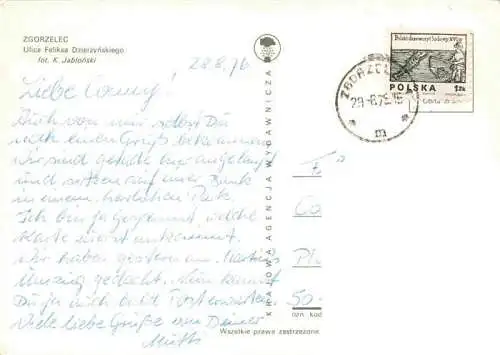 ZGORZELEC
Ulica Feliksa Dzierżyńskiego
fot. K. Jabłoński
28.8.76
Liebe Conny!
Auch von mir sollst Du
noch einen Gruß bekommen
wir sind gerade hier angelangt
und sitzen auf einer Bank
in einem herrlichen Park.
Ich bin ja gespannt welche
Karte zuerst ankommt.
Wir haben gestern an
Umzug gedacht. Nun kannst
Du ja mich bald
Viele liebe Grüße von Deiner
Mutti
KRAJOWA AGENCJA WYDAWNICZA
POLSKA
1zł
ZGORZELEC
Wszelkie prawa zastrzeżone